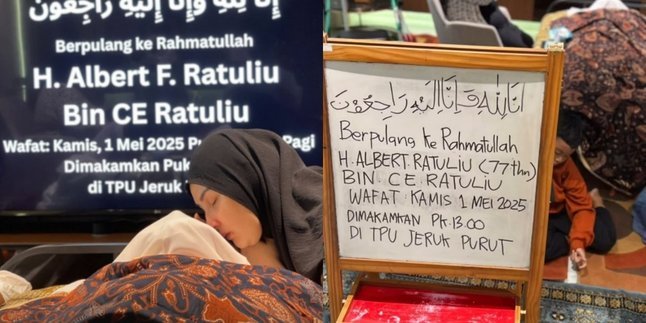 إنا لله وإنا إليه راجعون
Berpulang ke Rahmatullah
H. Albert F. Ratuliu
Bin CE Ratuliu
Wafat: Kamis, 1 Mei 2025 Pu Pagi
Dimakamkan Puk
di TPU Jeruk
إنا لله وإنا إليه راجعون
Berpulang ke Rahmatullah
H. ALBERT. RATULIU (77 thn)
BIN. CE. RATULIU
WAFAT : KAMIS 1 MEI 2025
DIMAKAMKAN Pk. 13.00
DI TPU JERUK PURUT